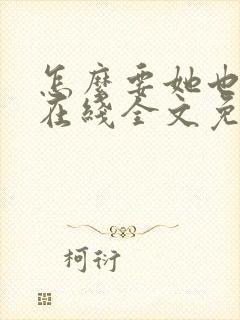 怎麽要她也
在綫全文免
柯衍